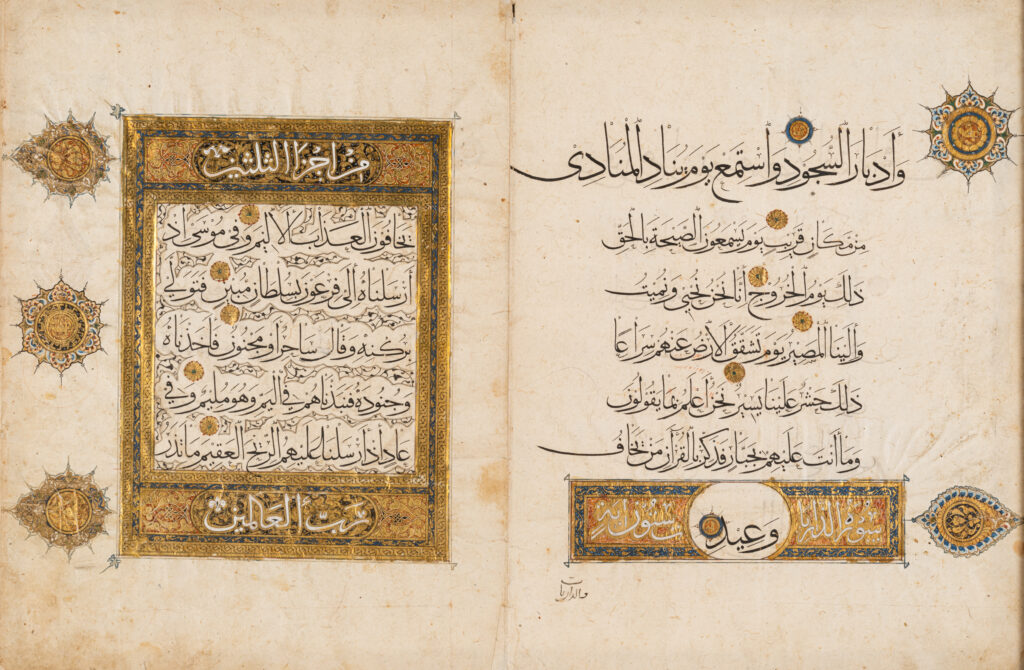 وأدبار السجود واستمع يوم يناد المنادى
من مكان قريب يوم يسمعون الصيحة بالحق
ذلك يوم الخروج انا نحن نحيي ونميت
والينا المصير يوم تشقق الأرض عنهم سراعا
ذلك حشر علينا يسير نحن أعلم بما يقولون
وما أنت عليهم بجبار فذكر بالقرآن من يخاف
سورة الذاريات وعيد ستون اية
والذاريات
من اجزا الثلثين
يخافون العذاب الاليم وفى موسى اذ
أرسلناه الى فرعون بسلطان مبين فتولى
بركنه وقال ساحر أو مجنون فاخذناه
وجنوده فنبذناهم في اليم وهو مليم وفي
عاد اذ أرسلنا عليهم الريح العقيم ما تذر
رب العالمين